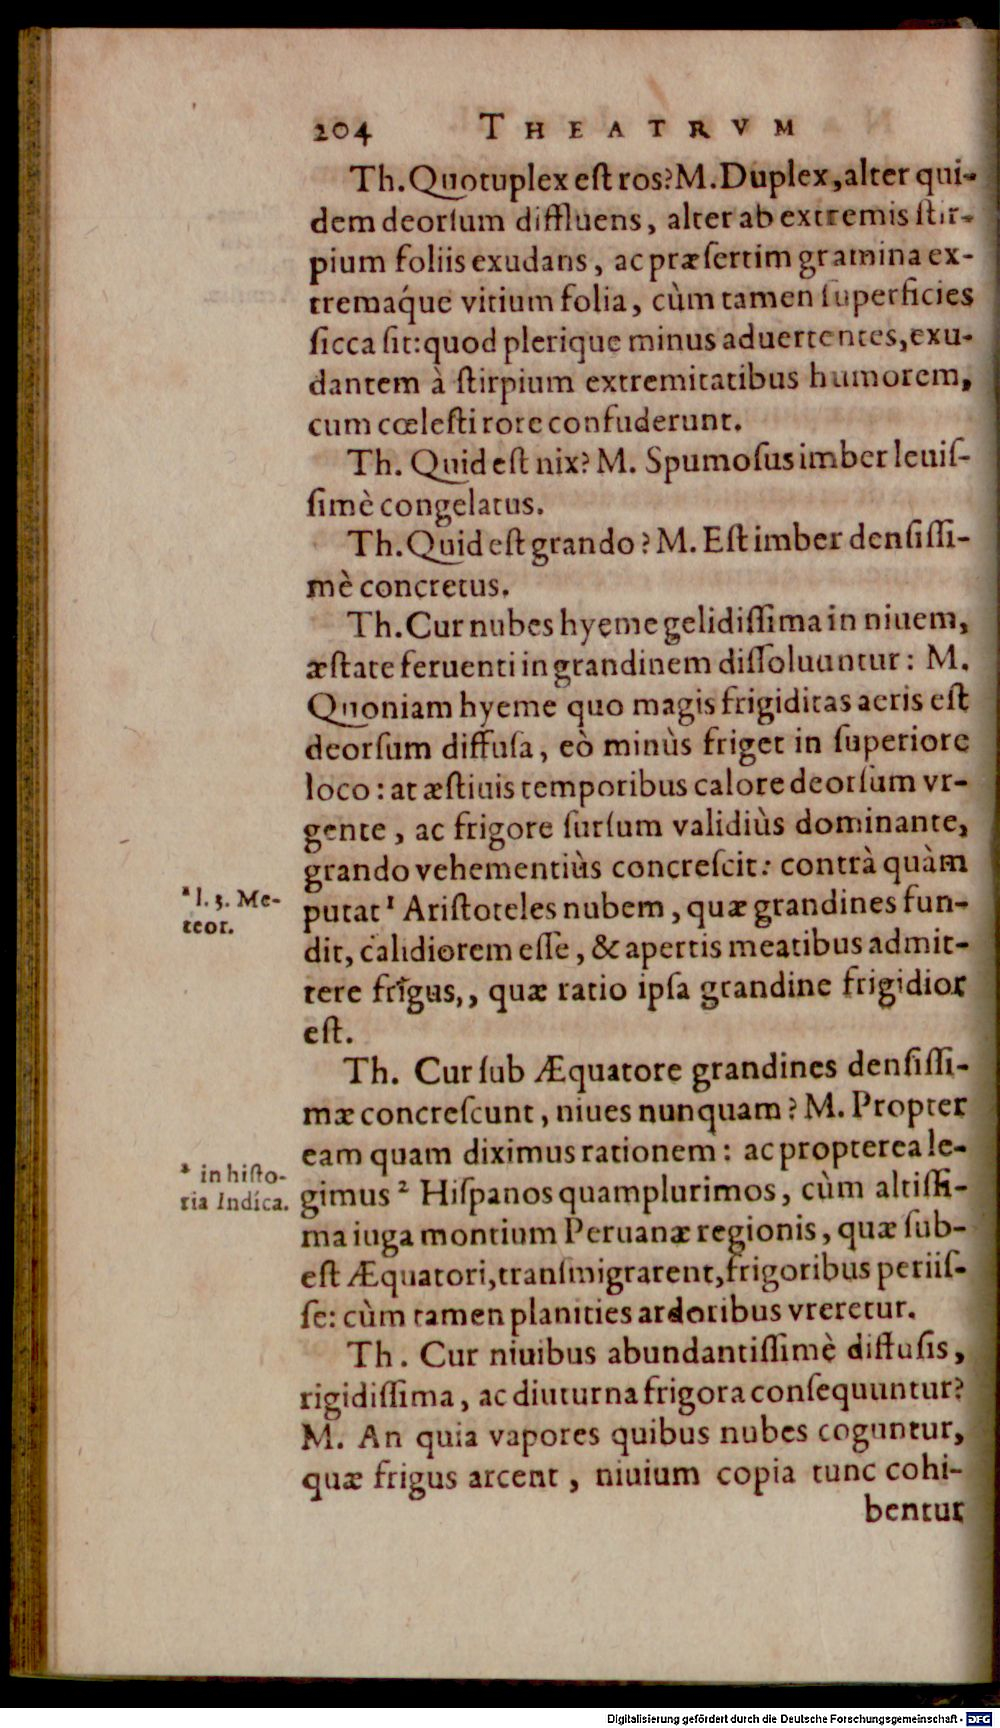 204 THEATRVM
Th. Quotuplex eſt ros? M. Duplex, alter qui-
dem deorſum diffluens, alter ab extremis ſtir-
pium foliis exudans, ac præſertim gramina ex-
tremáque vitium folia, cùm tamen ſuperficies
ſicca ſit: quod plerique minus aduertentes, exu-
dantem à ſtirpium extremitatibus humorem,
cum cœleſti rore confuderunt.
Th. Quid eſt nix? M. Spumoſus imber leuiſ-
ſimè congelatus.
Th. Quid eſt grando? M. Eſt imber denſiſſi-
mè concretus.
Th. Cur nubes hyeme gelidiſſima in niuem,
æſtate feruenti in grandinem diſſoluuntur: M.
Quoniam hyeme quo magis frigiditas aeris eſt
deorſum diffuſa, eò minùs friget in ſuperiore
loco: at æſtiuis temporibus calore deorſum vr-
gente, ac frigore ſurſum validiùs dominante,
grando vehementiùs concreſcit: contrà quàm
putat¹ Ariſtoteles nubem, quæ grandines fun-
dit, calidiorem eſſe, & apertis meatibus admit-
tere frigus,, quæ ratio ipſa grandine frigidior
eſt.
¹ l. 3. Me-
teor.
Th. Cur ſub Æquatore grandines denſiſſi-
mæ concreſcunt, niues nunquam? M. Propter
eam quam diximus rationem: ac propterea le-
gimus ² Hiſpanos quamplurimos, cùm altiſſi-
ma iuga montium Peruanæ regionis, quæ ſub-
eſt Æquatori, tranſmigrarent, frigoribus periiſ-
ſe: cùm tamen planities ardoribus vreretur.
² in hiſto-
ria Indica.
Th. Cur niuibus abundantiſſimè diffuſis,
rigidiſſima, ac diuturna frigora conſequuntur?
M. An quia vapores quibus nubes coguntur,
quæ frigus arcent, niuium copia tunc cohi-
bentur
Digitalisierung gefördert durch die Deutsche Forschungsgemeinschaft - DFG